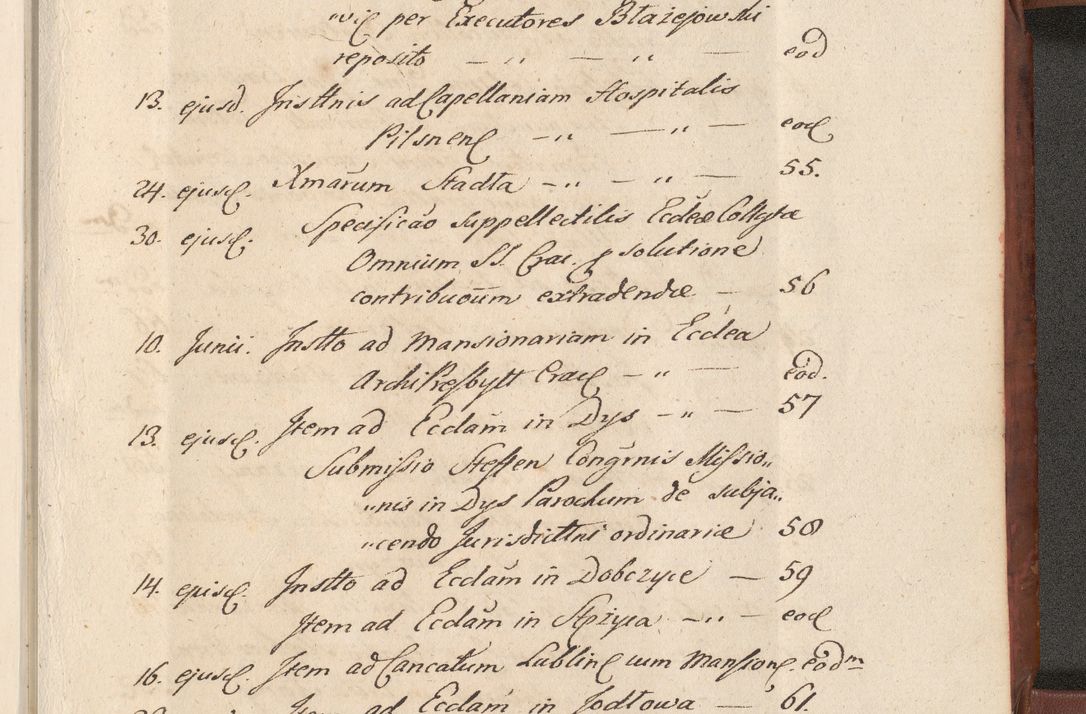 "vić per Executores Błażejowski
reposito — " — " — eod
13. ejusd. Insttnis ad Capellaniam Hospitalis
Pilsnen — " — " — eod
24. ejusd. Xmarum Stadta — " — " — 55.
30. ejusd. Specificāo suppellectilis Ecclæ Collgtæ
Omnium SS. Crac. p solutione
contribuōum extradendæ — 56
10. Junii. Instto ad Mansionariam in Ecclea
ArchiPresbytt Crac — " — eod.
13. ejusd. Item ad Ecclam in Dys — " — 57
Submissio Congrnis Missio„
„nis in Dys Parochum de subja„
„cendo Jurisdicttni ordinariæ 58
14. ejusd. Instto ad Ecclam in Dobczyce — 59
Item ad Ecclam in — " — eod
16. ejusd. Item ad Cancatum Lublin cum Mansion. eodm
Item ad Ecclam in Jodłowa — 61.